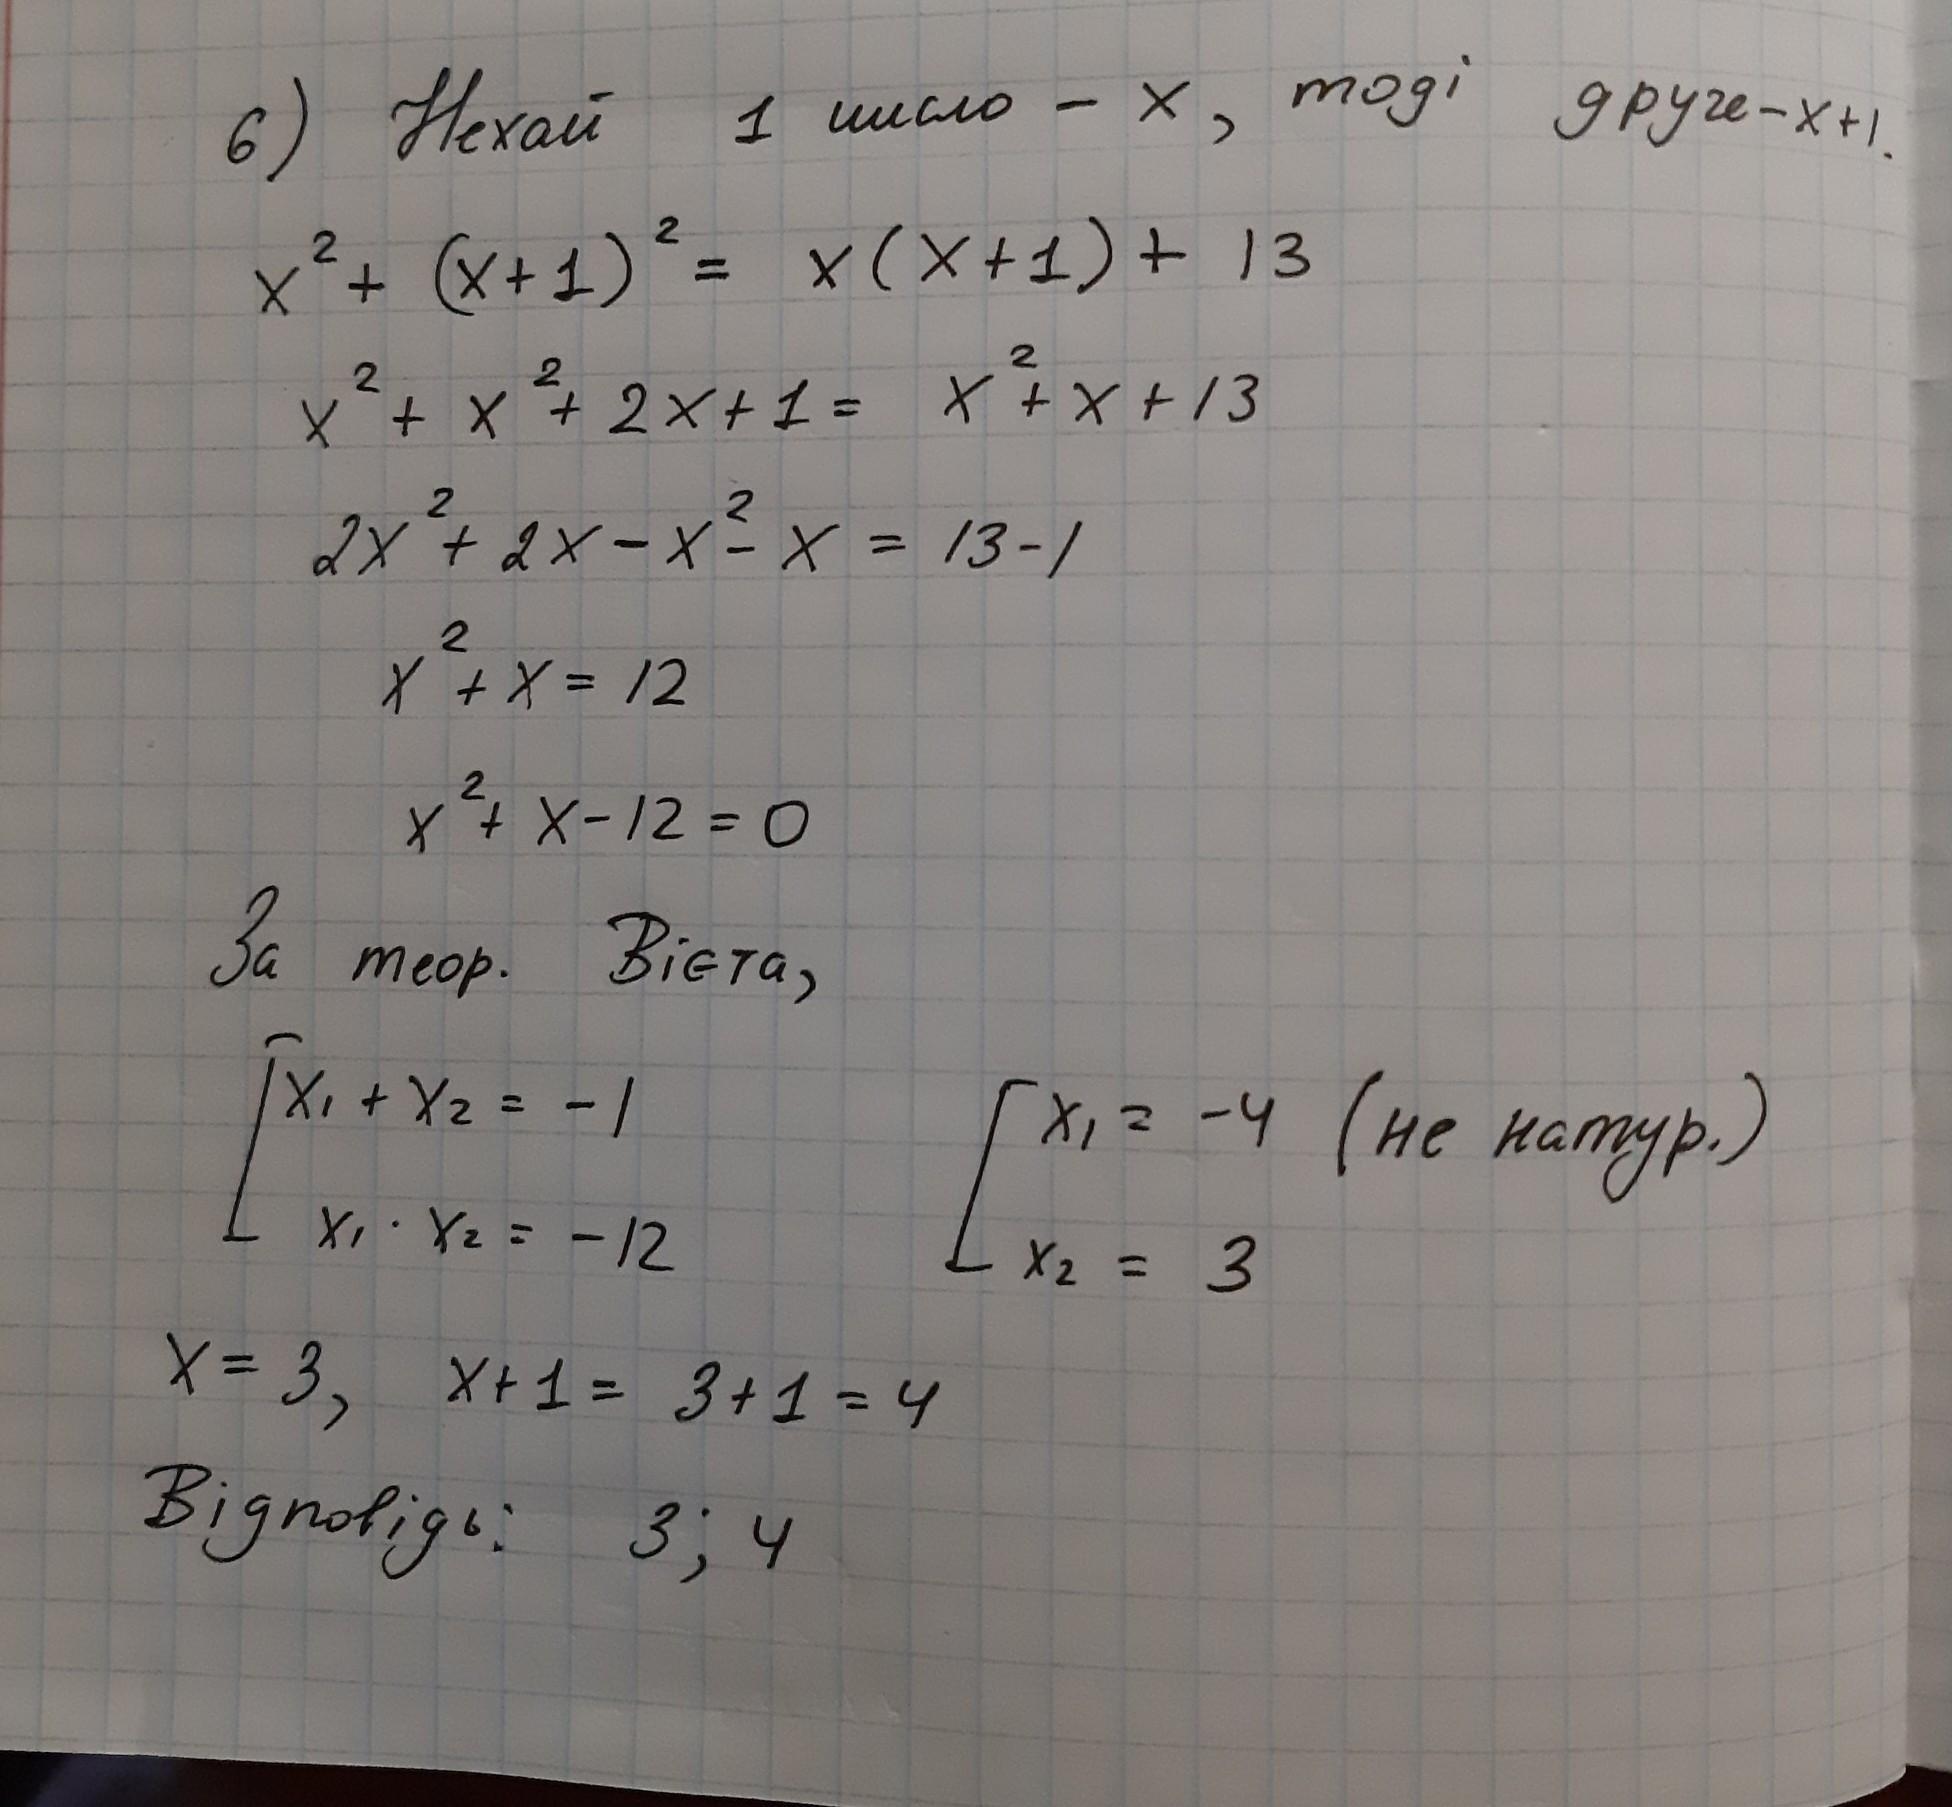 6) Нехай 1 число - x, тоді друге - x+1.
x² + (x+1)² = x(x+1) + 13
x² + x² + 2x + 1 = x² + x + 13
2x² + 2x - x² - x = 13 - 1
x² + x = 12
x² + x - 12 = 0
За теор. Вієта,
[ x₁ + x₂ = -1 [ x₁ = -4 (не натур.)
x₁ · x₂ = -12 x₂ = 3
x = 3, x+1 = 3+1 = 4
Відповідь: 3; 4